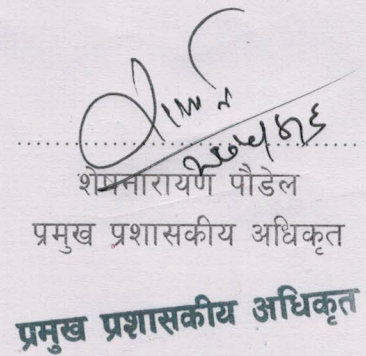 शेषनारायण पौडेल
प्रमुख प्रशासकीय अधिकृत
प्रमुख प्रशासकीय अधिकृत